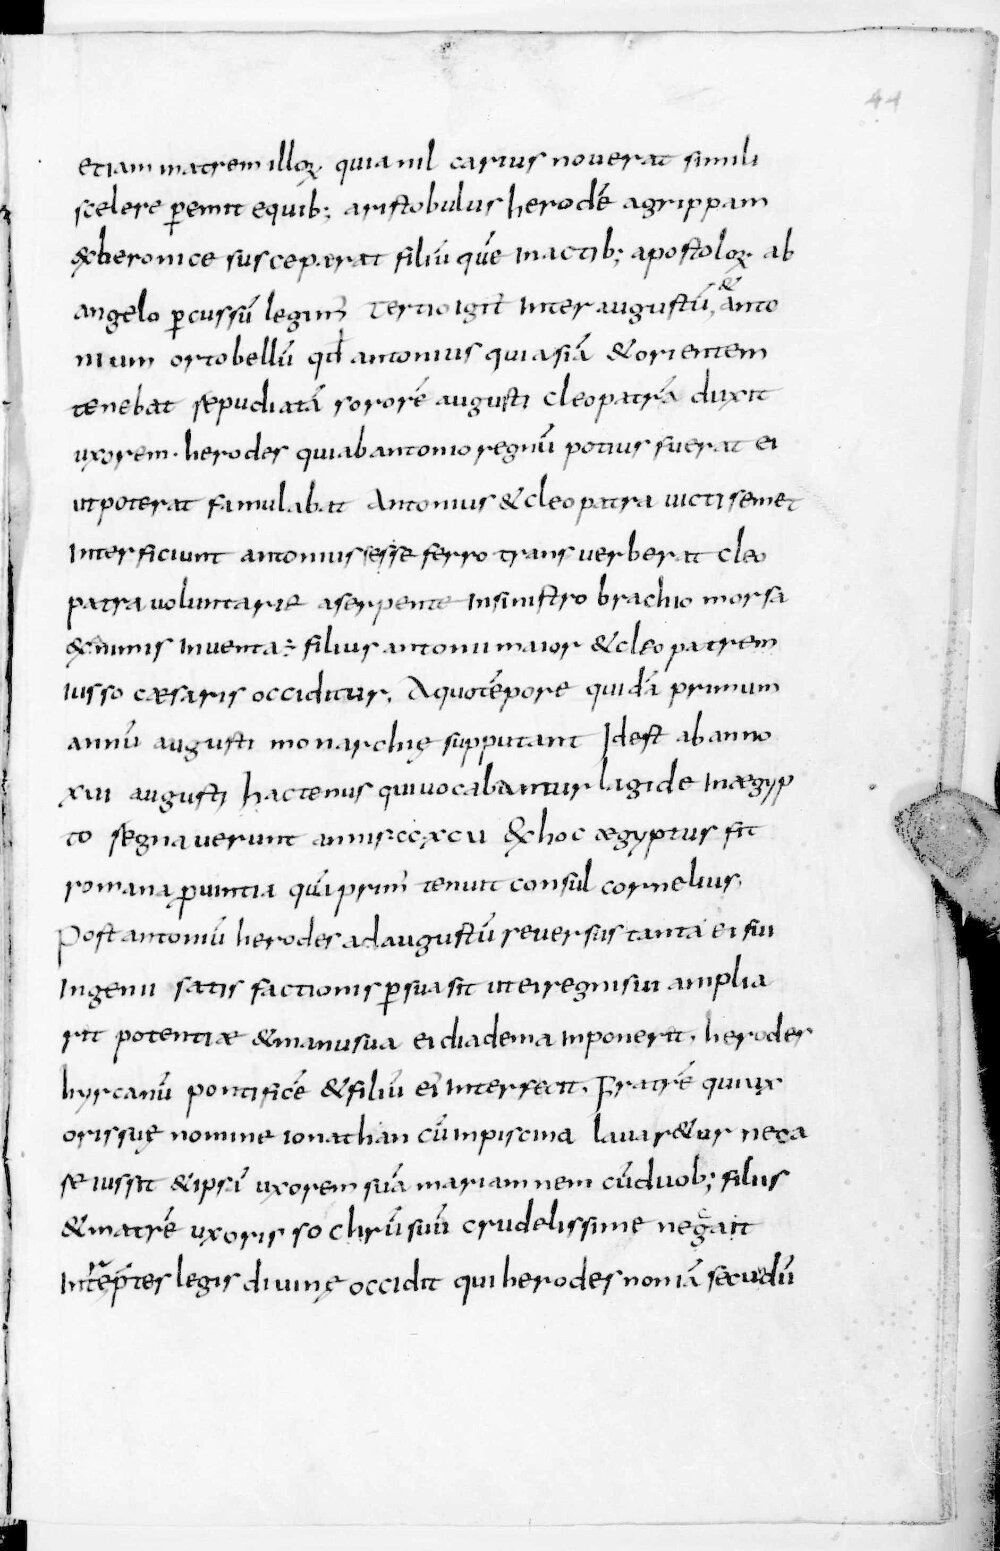 44
etiam matrem illoꝝ. quia nil carius noverat simili
scelere ꝑemit equib; aristobulus herodē agrippam
&beronice susceperat filiū quē in actib; apostoloꝝ. ab
angelo ꝑcussū legim̄ tertio igit̄ inter augustū, & anto
nium orto bellū qđ antonius qui asiā & orientem
tenebat repudiatā sororē augusti cleopatrā duxit
uxorem. herodes qui ab antonio regnū potius fuerat ei
ut poterat famulabat Antonius & cleopatra victi semet
interficiunt antonius sese ferro transverberat cleo
patra voluntarie a serpente in sinistro brachio morsa
& inventa filius antonii maior & cleopatrem
iusso cæsaris occiditur. A quo tēpore quidā primum
annū augusti monarchię supputant Id est ab anno
xiiii augusti hactenus qui vocabantur lagide in ægyp
to regnaverunt annis ccxcv & hoc ægyptus fit
romana ꝓvintia quā prim̄ tenuit consul cornelius.
Post antoniū herodes ad augustū reversus tanta ei sui
ingenii satisfactionis ꝑsuasit ut ei regni sui amplia
rit potentiæ & manu sua ei diadema inponerit. herodes
hyrcanū pontificē & filiū ei' interfecit. Fratrē quoq ux
oris suę nomine ionathan cū in piscina lavar&ur neca
re iussit & ipsā uxorem suā mariamnem cū duob; filiis
& matrē uxoris sochrū suū crudelissime negait
Intēp̄tes legis divinę occidit qui herodes non iā secudū